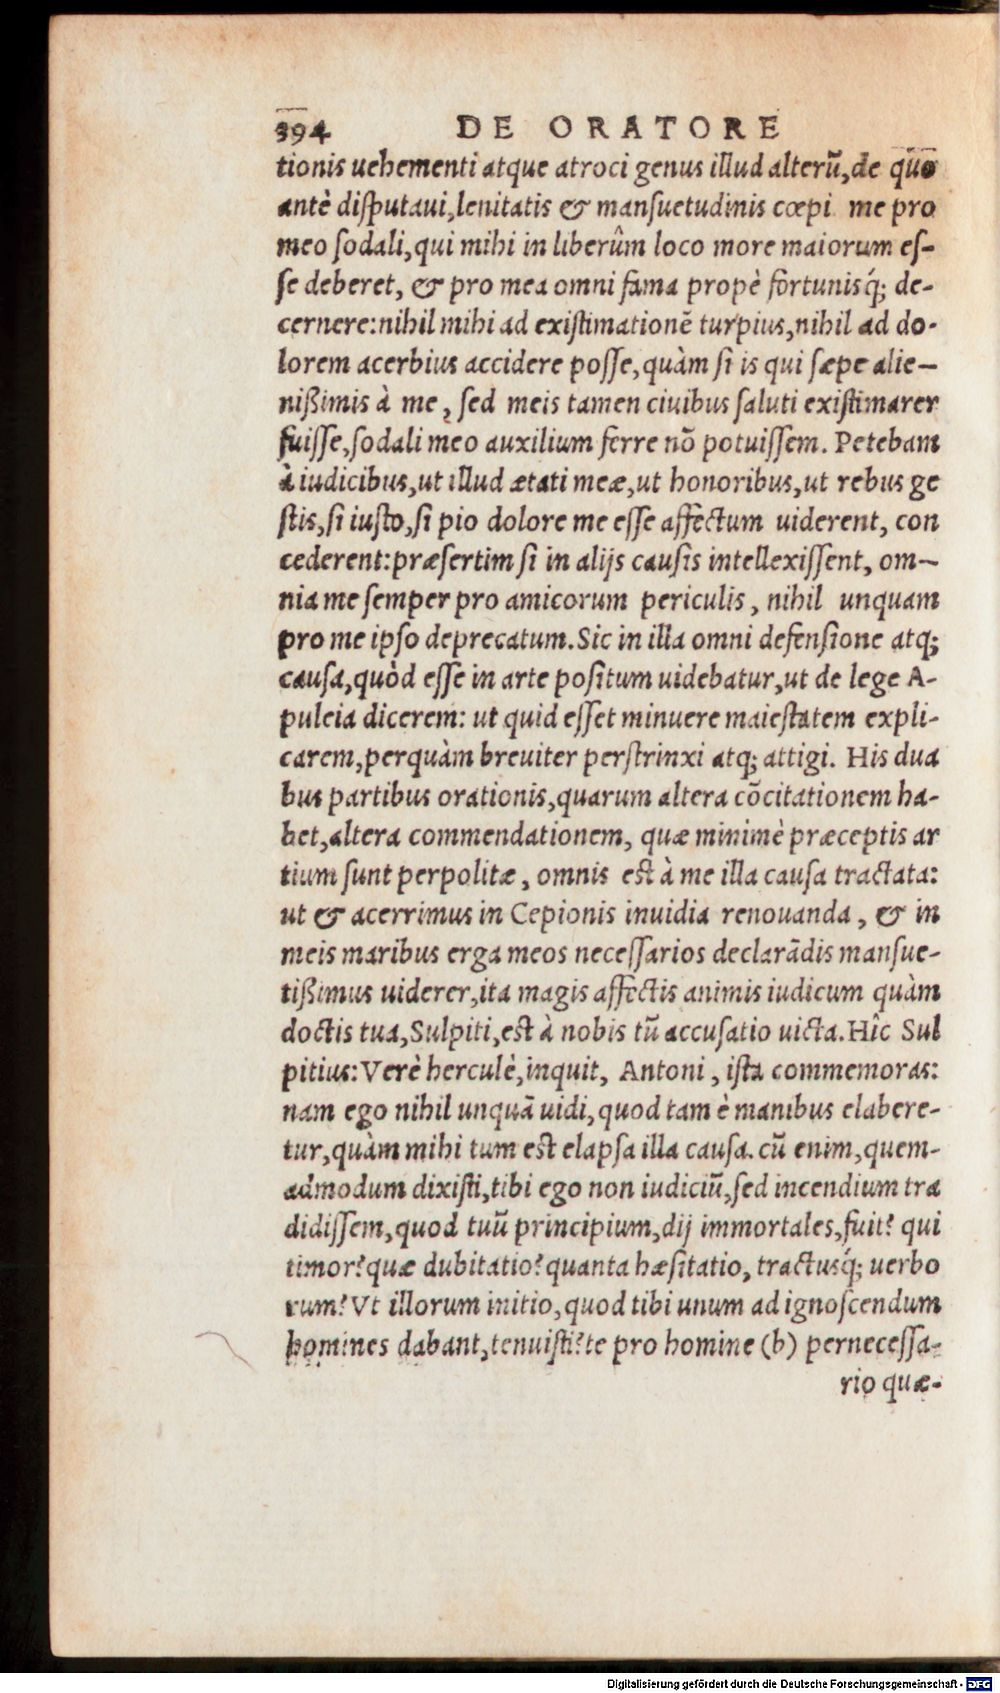 394 DE ORATORE
tionis uehementi atque atroci genus illud alterũ, de quo
antè disputaui, lenitatis & mansuetudinis cœpi me pro
meo sodali, qui mihi in liberûm loco more maiorum es-
se deberet, & pro mea omni fama propè fortunisq́; de-
cernere: nihil mihi ad existimationẽ turpius, nihil ad do-
lorem acerbius accidere posse, quàm si is qui sæpe alie-
nißimis à me, sed meis tamen ciuibus saluti existimarer
fuisse, sodali meo auxilium ferre nõ potuissem. Petebam
à iudicibus, ut illud ætati meæ, ut honoribus, ut rebus ge
stis, si iusto, si pio dolore me esse affectum uiderent, con
cederent: præsertim si in alijs causis intellexissent, om-
nia me semper pro amicorum periculis, nihil unquam
pro me ipso deprecatum. Sic in illa omni defensione atq;
causa, quòd esse in arte positum uidebatur, ut de lege A-
puleia dicerem: ut quid esset minuere maiestatem expli-
carem, perquàm breuiter perstrinxi atq; attigi. His dua
bus partibus orationis, quarum altera cõcitationem ha-
bet, altera commendationem, quæ minimè præceptis ar
tium sunt perpolitæ, omnis est à me illa causa tractata:
ut & acerrimus in Cepionis inuidia renouanda, & in
meis maribus erga meos necessarios declarãdis mansue-
tißimus uiderer, ita magis affectis animis iudicum quàm
doctis tua, Sulpiti, est à nobis tũ accusatio uicta. Hîc Sul
pitius: Verè herculè, inquit, Antoni, ista commemoras:
nam ego nihil unquã uidi, quod tam è manibus elabere-
tur, quàm mihi tum est elapsa illa causa. cũ enim, quem-
admodum dixisti, tibi ego non iudiciũ, sed incendium tra
didissem, quod tuũ principium, dij immortales, fuit? qui
timor? quæ dubitatio? quanta hæsitatio, tractusq́; uerbo
rum? Vt illorum initio, quod tibi unum ad ignoscendum
homines dabant, tenuisti? te pro homine (b) pernecessa-
rio quæ-
Digitalisierung gefördert durch die Deutsche Forschungsgemeinschaft - DFG